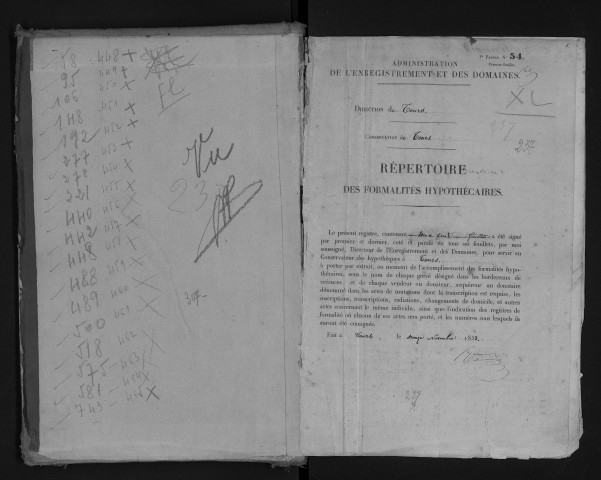 58 448 X
95 449 X
106 450 X
148 451 X
192 452 X
277 453 X
278 454 X
321 455 X
440 456 X
442 457 X
448 458 X
488 459
489 460
500 461
518 462
575 463
581 464
743 465 X
Vu
23
307
Fe PARTIE N° 54.
ADMINISTRATION
DE L'ENREGISTREMENT ET DES DOMAINES.
XL
DIRECTION de Tours.
237
CONSERVATION de Tours
232
RÉPERTOIRE
DES FORMALITÉS HYPOTHÉCAIRES.
Le présent registre, contenant deux cent feuillets a été signé
par premier et dernier, coté et parafé en tous ses feuillets, par moi
soussigné, Directeur de l'Enregistrement et des Domaines, pour servir au
Conservateur des hypothèques à Tours
à porter par extrait, au moment de l'accomplissement des formalités hypothécaires,
sous le nom de chaque grevé désigné dans les bordereaux de
créances, et de chaque vendeur ou donateur, acquéreur ou donataire
dénommé dans les actes de mutations dont la transcription est requise, les
inscriptions, transcriptions, radiations, changements de domicile, et autres
actes concernant le même individu, ainsi que l'indication des registres de
formalité où chacun de ces actes sera porté, et les numéros sous lesquels ils
auront été consignés.
FAIT à Tours le novembre
237